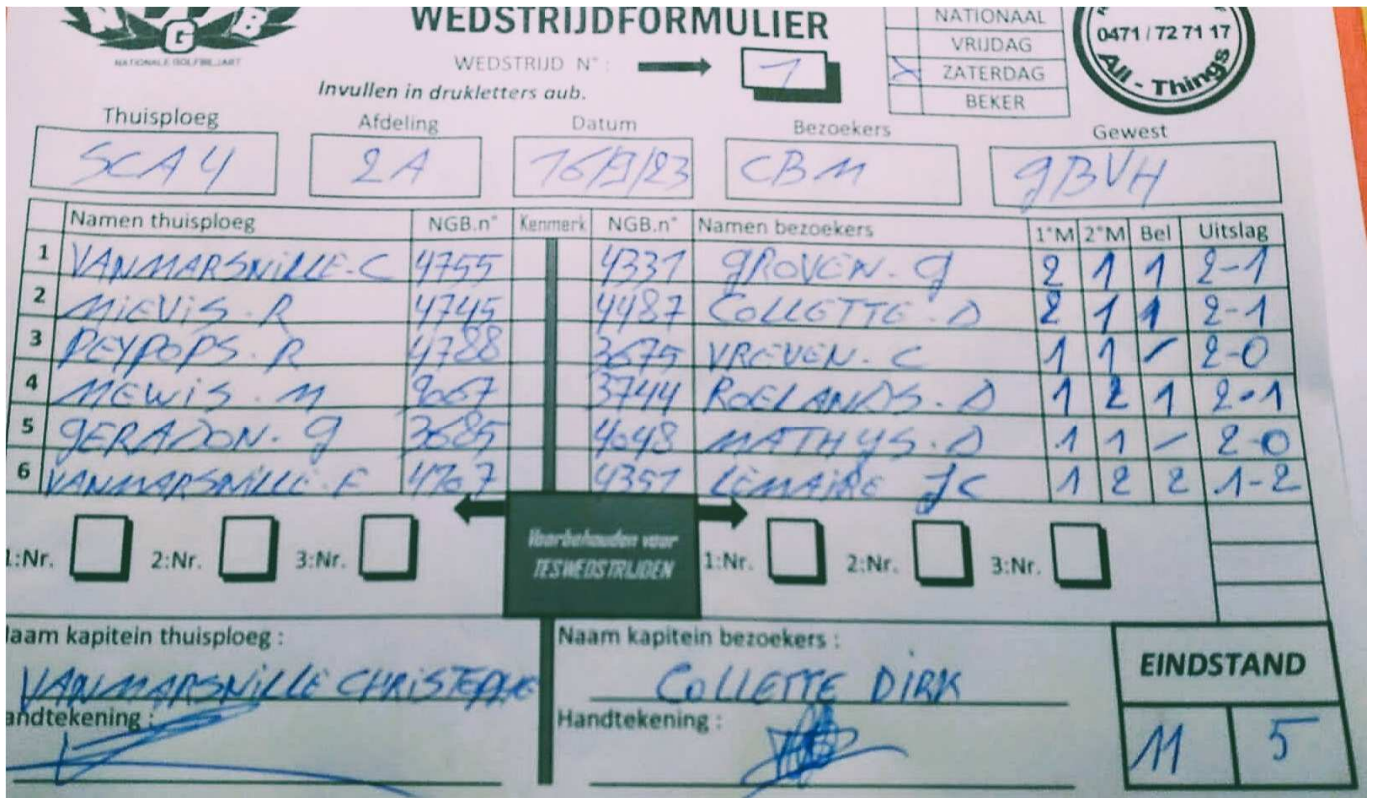 NGB
NATIONALE GOLFBILJART
WEDSTRIJDFORMULIER
WEDSTRIJD N°: 1
Invullen in drukletters aub.
NATIONAAL
VRIJDAG
X ZATERDAG
BEKER
0471 / 72 71 17
All - Things
Thuisploeg Afdeling Datum Bezoekers Gewest
SCA 4 2A 16/9/23 CBM GBVH
Namen thuisploeg NGB.n° Kenmerk NGB.n° Namen bezoekers 1°M 2°M Bel Uitslag
1 VANMARSNILLE-C 4755 4331 GROVEN. G 2 1 1 2-1
2 MIEVIS. R 4745 4487 COLLETTE. D 2 1 1 2-1
3 PEYPOPS. R 4788 3675 VREVEN. C 1 1 - 2-0
4 MEWIS. M 9067 3744 ROELANDS. D 1 2 1 2-1
5 GERADON. G 3685 4048 MATHYS. D 1 1 - 2-0
6 VANMARSNILLE. F 4767 4351 LEMAIRE JC 1 2 2 1-2
1:Nr. 2:Nr. 3:Nr. Voorbehouden voor 1:Nr. 2:Nr. 3:Nr.
TESWEDSTRIJDEN
Naam kapitein thuisploeg : Naam kapitein bezoekers :
VANMARSNILLE CHRISTEPHE COLLETTE DIRK
Handtekening : Handtekening :
EINDSTAND
11 5